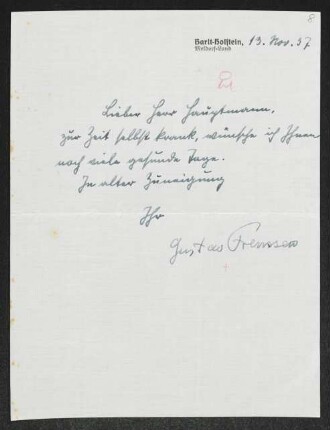 Barlt-Holstein, 13. Nov. 37
Meldorf-Land
Lieber Herr Hauptmann,
zur Zeit selbst krank, wünsche ich Ihnen
noch viele gesunde Tage.
In alter Zuneigung
Ihr
Gustav Frenssen